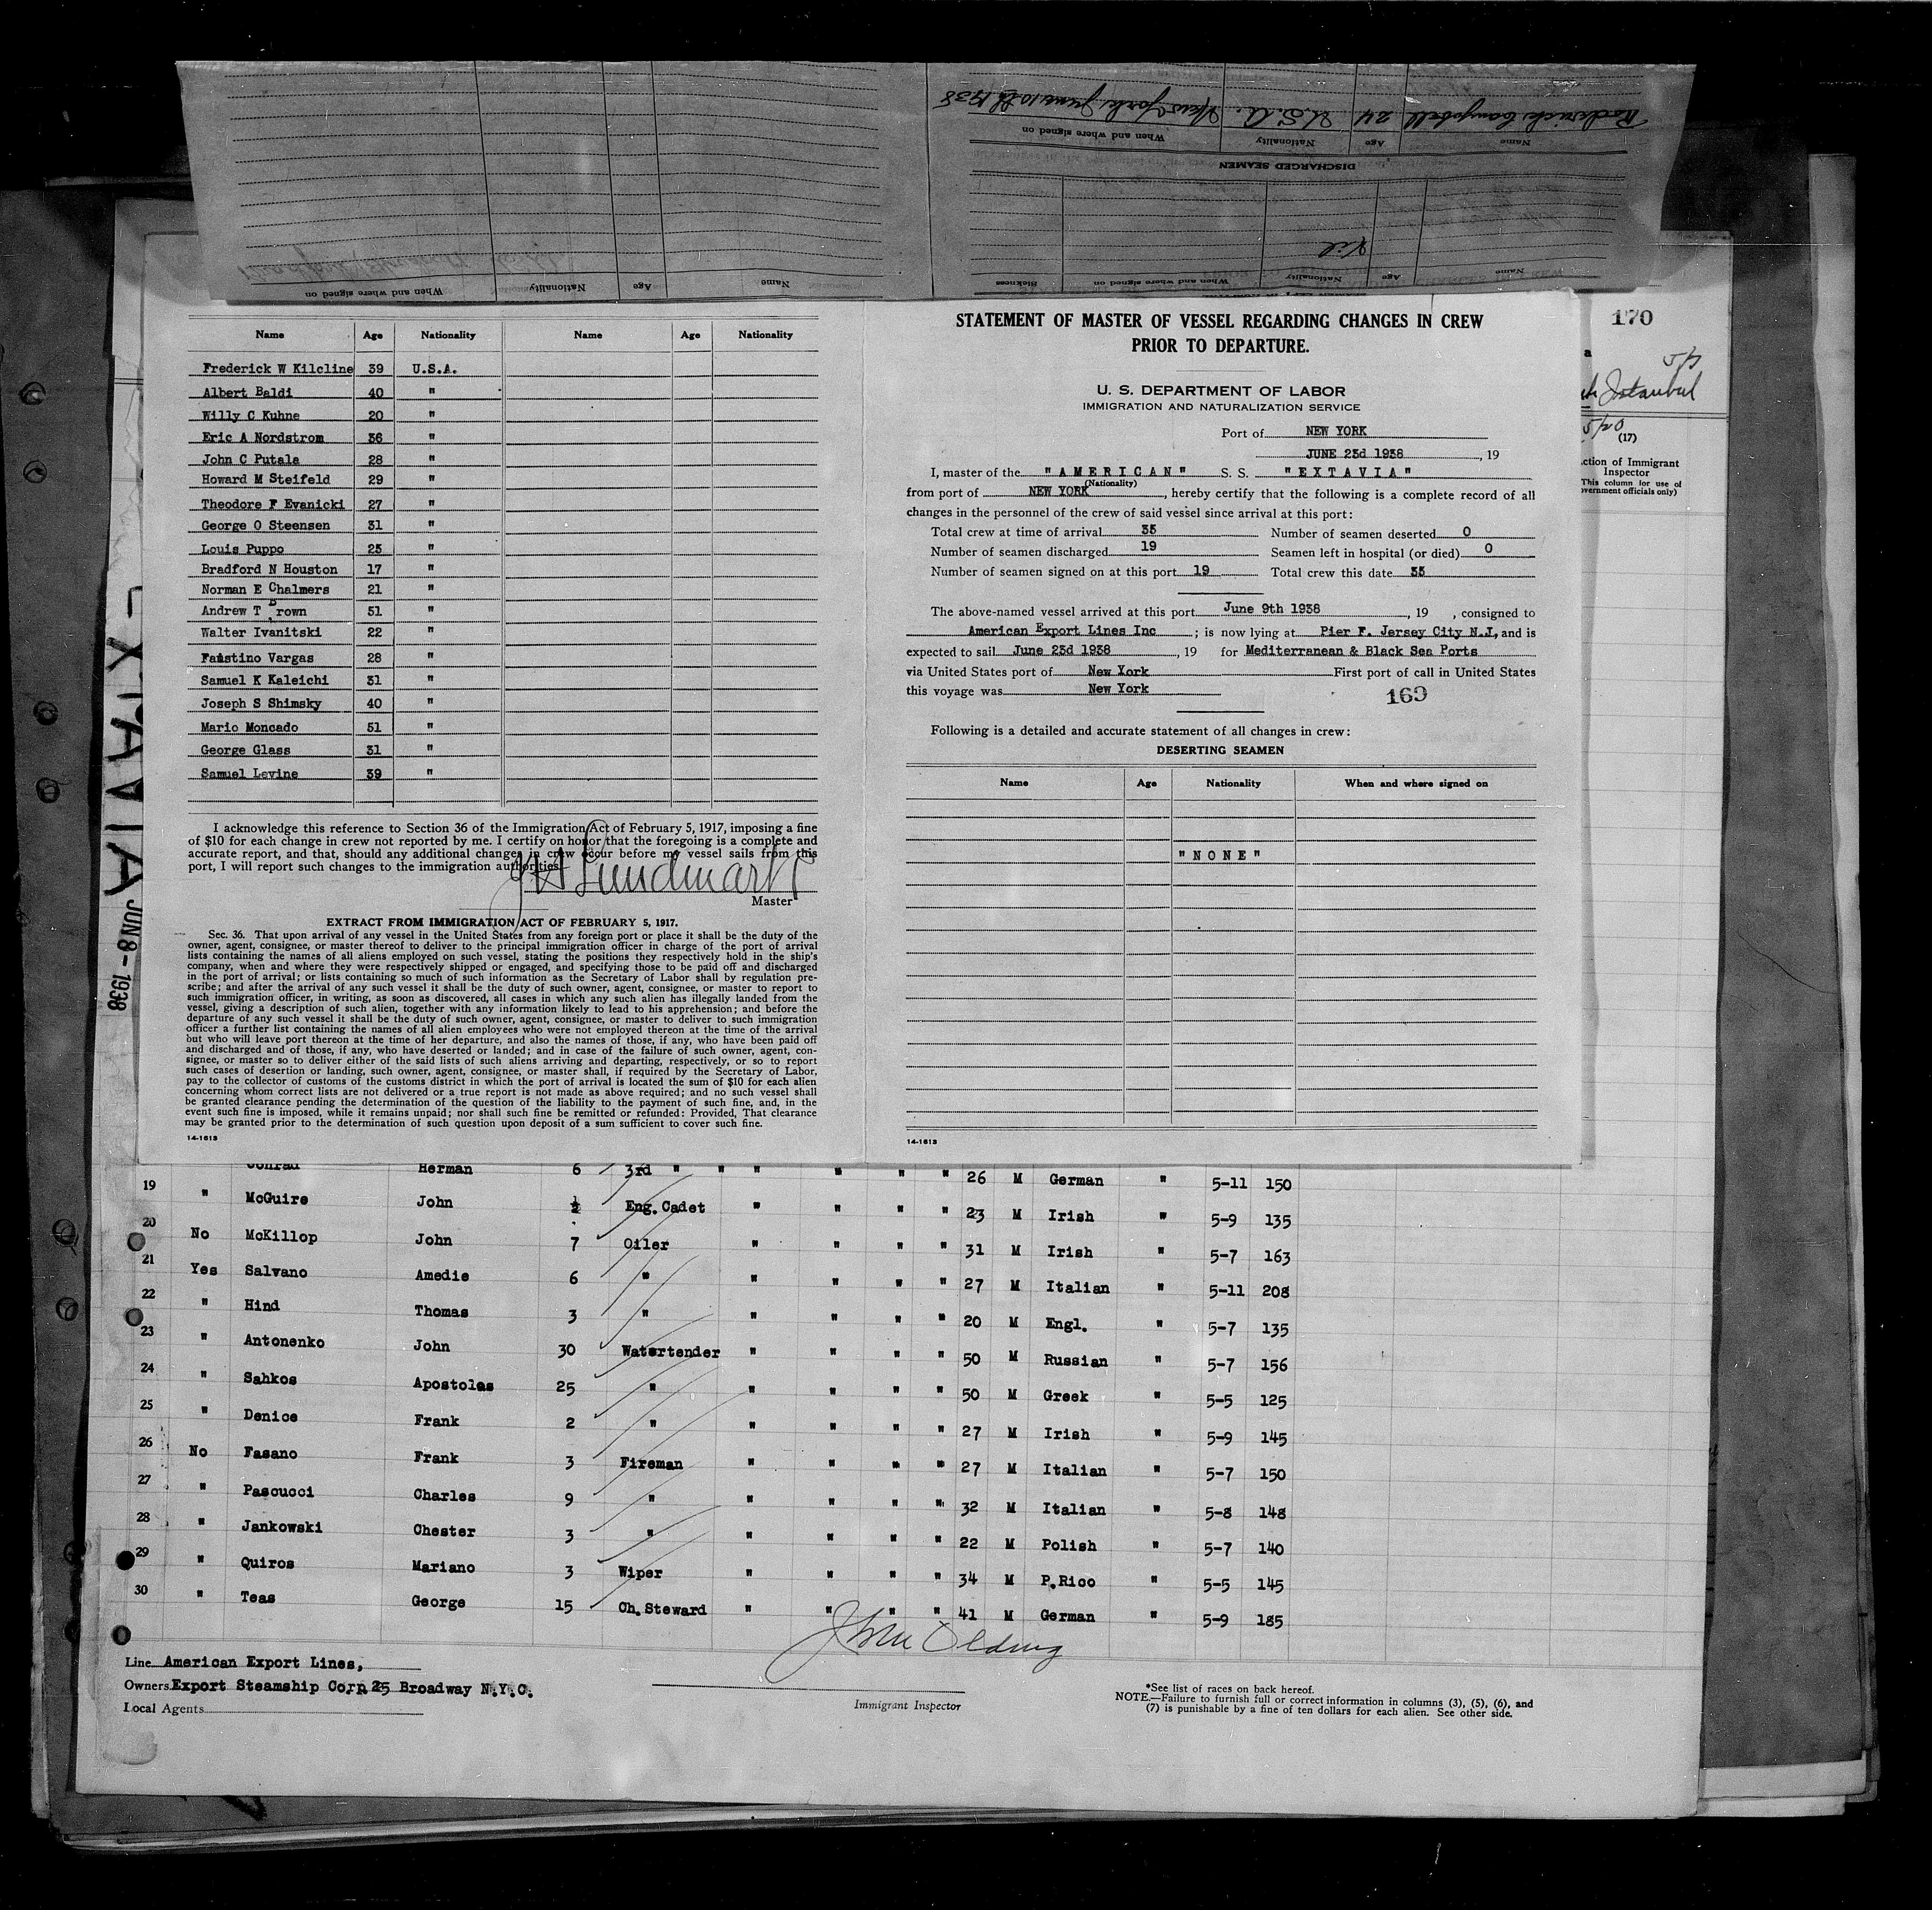 Roderick Campbell 24 U.S.A. New York June 10th 1938
Name Age Nationality When and where signed on
DISCHARGED SEAMEN
Nil
Name Age Nationality When and where signed on Sickness
Name Age Nationality When and where signed on
170
Istanbul
(17)
Action of Immigrant
Inspector
(This column for use of
Government officials only)
Name Age Nationality Name Age Nationality
Frederick W Kilcline 39 U.S.A.
Albert Baldi 40 "
Willy C Kuhne 20 "
Eric A Nordstrom 36 "
John C Putala 28 "
Howard M Steifeld 29 "
Theodore F Evanicki 27 "
George O Steensen 31 "
Louis Puppo 25 "
Bradford N Houston 17 "
Norman E Chalmers 21 "
Andrew T Brown 51 "
Walter Ivanitski 22 "
Faustino Vargas 28 "
Samuel K Kaleichi 31 "
Joseph S Shimsky 40 "
Mario Moncado 51 "
George Glass 31 "
Samuel Levine 39 "
I acknowledge this reference to Section 36 of the Immigration Act of February 5, 1917, imposing a fine
of $10 for each change in crew not reported by me. I certify on honor that the foregoing is a complete and
accurate report, and that, should any additional changes in crew occur before my vessel sails from this
port, I will report such changes to the immigration authorities.
Lundmark
Master
EXTRACT FROM IMMIGRATION ACT OF FEBRUARY 5, 1917.
Sec. 36. That upon arrival of any vessel in the United States from any foreign port or place it shall be the duty of the
owner, agent, consignee, or master thereof to deliver to the principal immigration officer in charge of the port of arrival
lists containing the names of all aliens employed on such vessel, stating the positions they respectively hold in the ship's
company, when and where they were respectively shipped or engaged, and specifying those to be paid off and discharged
in the port of arrival; or lists containing so much of such information as the Secretary of Labor shall by regulation pre-
scribe; and after the arrival of any such vessel it shall be the duty of such owner, agent, consignee, or master to report to
such immigration officer, in writing, as soon as discovered, all cases in which any such alien has illegally landed from the
vessel, giving a description of such alien, together with any information likely to lead to his apprehension; and before the
departure of any such vessel it shall be the duty of such owner, agent, consignee, or master to deliver to such immigration
officer a further list containing the names of all alien employees who were not employed thereon at the time of the arrival
but who will leave port thereon at the time of her departure, and also the names of those, if any, who have been paid off
and discharged and of those, if any, who have deserted or landed; and in case of the failure of such owner, agent, con-
signee, or master so to deliver either of the said lists of such aliens arriving and departing, respectively, or so to report
such cases of desertion or landing, such owner, agent, consignee, or master shall, if required by the Secretary of Labor,
pay to the collector of customs of the customs district in which the port of arrival is located the sum of $10 for each alien
concerning whom correct lists are not delivered or a true report is not made as above required; and no such vessel shall
be granted clearance pending the determination of the question of the liability to the payment of such fine, and, in the
event such fine is imposed, while it remains unpaid; nor shall such fine be remitted or refunded: Provided, That clearance
may be granted prior to the determination of such question upon deposit of a sum sufficient to cover such fine.
14-1613
STATEMENT OF MASTER OF VESSEL REGARDING CHANGES IN CREW
PRIOR TO DEPARTURE.
U. S. DEPARTMENT OF LABOR
IMMIGRATION AND NATURALIZATION SERVICE
Port of NEW YORK
JUNE 23d 1938, 19
I, master of the "AMERICAN" S. S. "EXTAVIA"
(Nationality)
from port of NEW YORK, hereby certify that the following is a complete record of all
changes in the personnel of the crew of said vessel since arrival at this port:
Total crew at time of arrival 35 Number of seamen deserted 0
Number of seamen discharged 19 Seamen left in hospital (or died) 0
Number of seamen signed on at this port 19 Total crew this date 35
The above-named vessel arrived at this port June 9th 1938, 19 , consigned to
American Export Lines Inc ; is now lying at Pier F. Jersey City N.J, and is
expected to sail June 23d 1938, 19 for Mediterranean & Black Sea Ports
via United States port of New York First port of call in United States
this voyage was New York
169
Following is a detailed and accurate statement of all changes in crew:
DESERTING SEAMEN
Name Age Nationality When and where signed on
"NONE"
14-1613
EXTAVIA JUN 8 - 1938
Conrad Herman 6 3rd " " " " " " 26 M German " 5-11 150
19 " McGuire John ½ Eng. Cadet " " " " 23 M Irish " 5-9 135
20 No McKillop John 7 Oiler " " " " 31 M Irish " 5-7 163
21 Yes Salvano Amedie 6 " " " " " 27 M Italian " 5-11 208
22 " Hind Thomas 3 " " " " " 20 M Engl. " 5-7 135
23 " Antonenko John 30 Watertender " " " " 50 M Russian " 5-7 156
24 " Sahkos Apostolos 25 " " " " " 50 M Greek " 5-5 125
25 " Denice Frank 2 " " " " " 27 M Irish " 5-9 145
26 No Fasano Frank 3 Fireman " " " " 27 M Italian " 5-7 150
27 " Pascucci Charles 9 " " " " " 32 M Italian " 5-8 148
28 " Jankowski Chester 3 " " " " " 22 M Polish " 5-7 140
29 " Quiros Mariano 3 Wiper " " " " 34 M P.Rico " 5-5 145
30 " Teas George 15 Ch. Steward " " " " 41 M German " 5-9 185
Line American Export Lines,
Owners Export Steamship Corp 25 Broadway N.Y.C.
Local Agents
Immigrant Inspector
*See list of races on back hereof.
NOTE.—Failure to furnish full or correct information in columns (3), (5), (6), and
(7) is punishable by a fine of ten dollars for each alien. See other side.